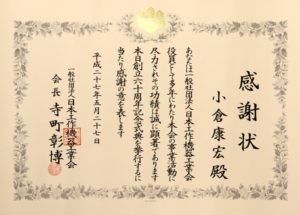 感謝状
小倉康宏殿
あなたは一般社団法人日本工作機器工業会
役員として多年にわたり本会の事業活動に
尽力されその功績は誠に顕著であります
本日創立六十周年記念式典を挙行するに
当たり感謝の意を表します
平成二十七年五月二十七日
一般社団法人日本工作機器工業会
会長 寺町彰博